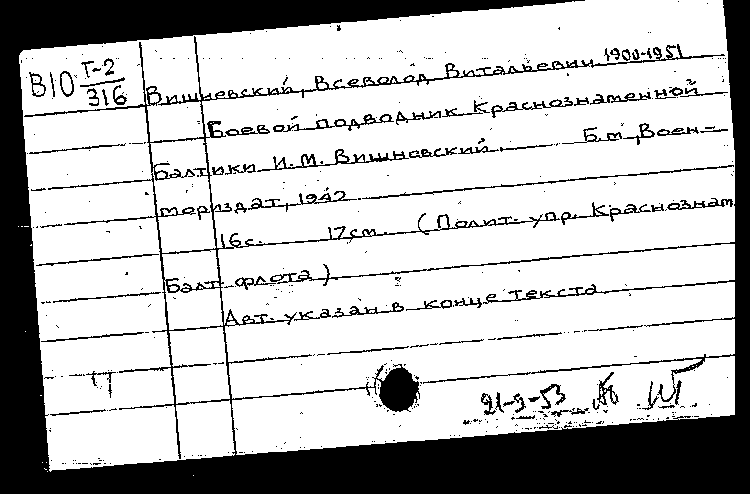 В10 Т-2/316
Вишневский, Всеволод Витальевич 1900-1951
Боевой подводник Краснознаменной
Балтики И.М. Вишневский. Б.м, Воен-
мориздат, 1942
16с. 17см. (Полит. упр. Краснознам
Балт флота)
Авт. указан в конце текста
21-9-53